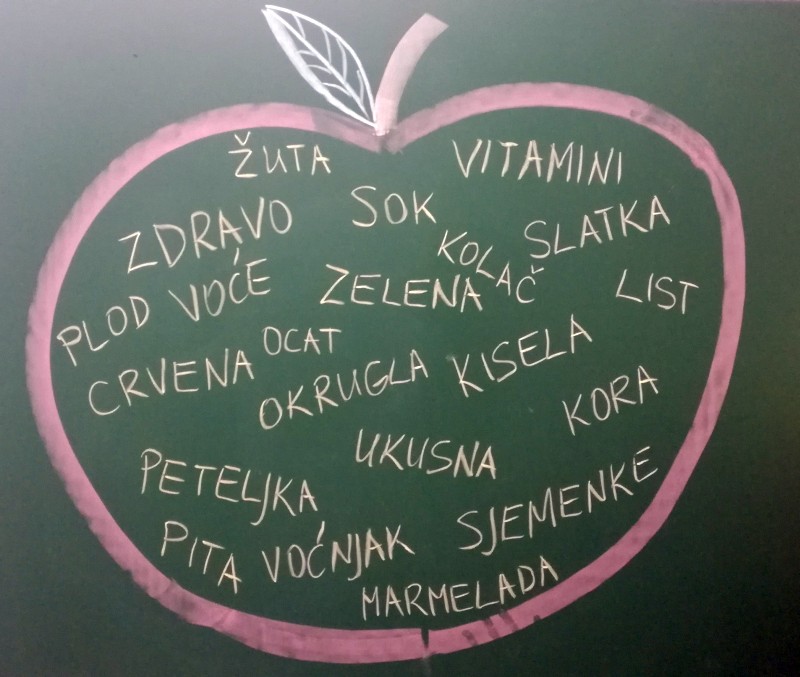 ŽUTA
VITAMINI
ZDRAVO
SOK
SLATKA
KOLAČ
PLOD
VOĆE
ZELENA
LIST
CRVENA
OCAT
OKRUGLA
KISELA
KORA
PETELJKA
UKUSNA
SJEMENKE
PITA
VOĆNJAK
MARMELADA